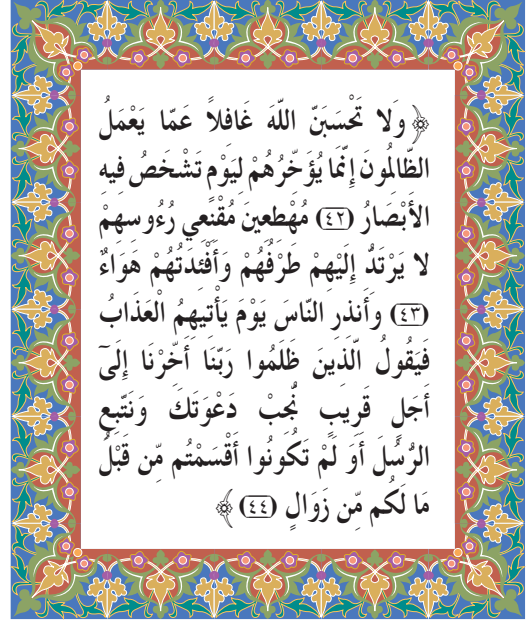 ﴿ وَلا تَحْسَبَنَّ اللَّهَ غَافِلاً عَمَّا يَعْمَلُ
الظَّالِمُونَ إِنَّمَا يُؤَخِّرُهُمْ لِيَوْمٍ تَشْخَصُ فِيهِ
الأَبْصَارُ (٤٢) مُهْطِعِينَ مُقْنِعِي رُءُوسِهِمْ
لا يَرْتَدُّ إِلَيْهِمْ طَرْفُهُمْ وَأَفْئِدَتُهُمْ هَوَاءٌ
(٤٣) وأَنذِرِ النَّاسَ يَوْمَ يَأْتِيهِمُ الْعَذَابُ
فَيَقُولُ الَّذِينَ ظَلَمُوا رَبَّنَا أَخِّرْنَا إِلَىٓ
أَجَلٍ قَرِيبٍ نُّجِبْ دَعْوَتَكَ وَنَتَّبِعِ
الرُّسُلَ أَوَ لَمْ تَكُونُوا أَقْسَمْتُم مِّن قَبْلُ
مَا لَكُم مِّن زَوَالٍ (٤٤) ﴾